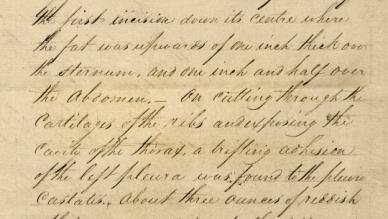 the first incision down its centre where
the fat was upwards of one inch thick over
the sternum, and one inch and half over
the abdomen.— On cutting through the
cartilages of the ribs and exposing the
cavity of the thorax, a trifling adhision
of the left pleura was found to the pleura
Costalis. About three ounces of reddish